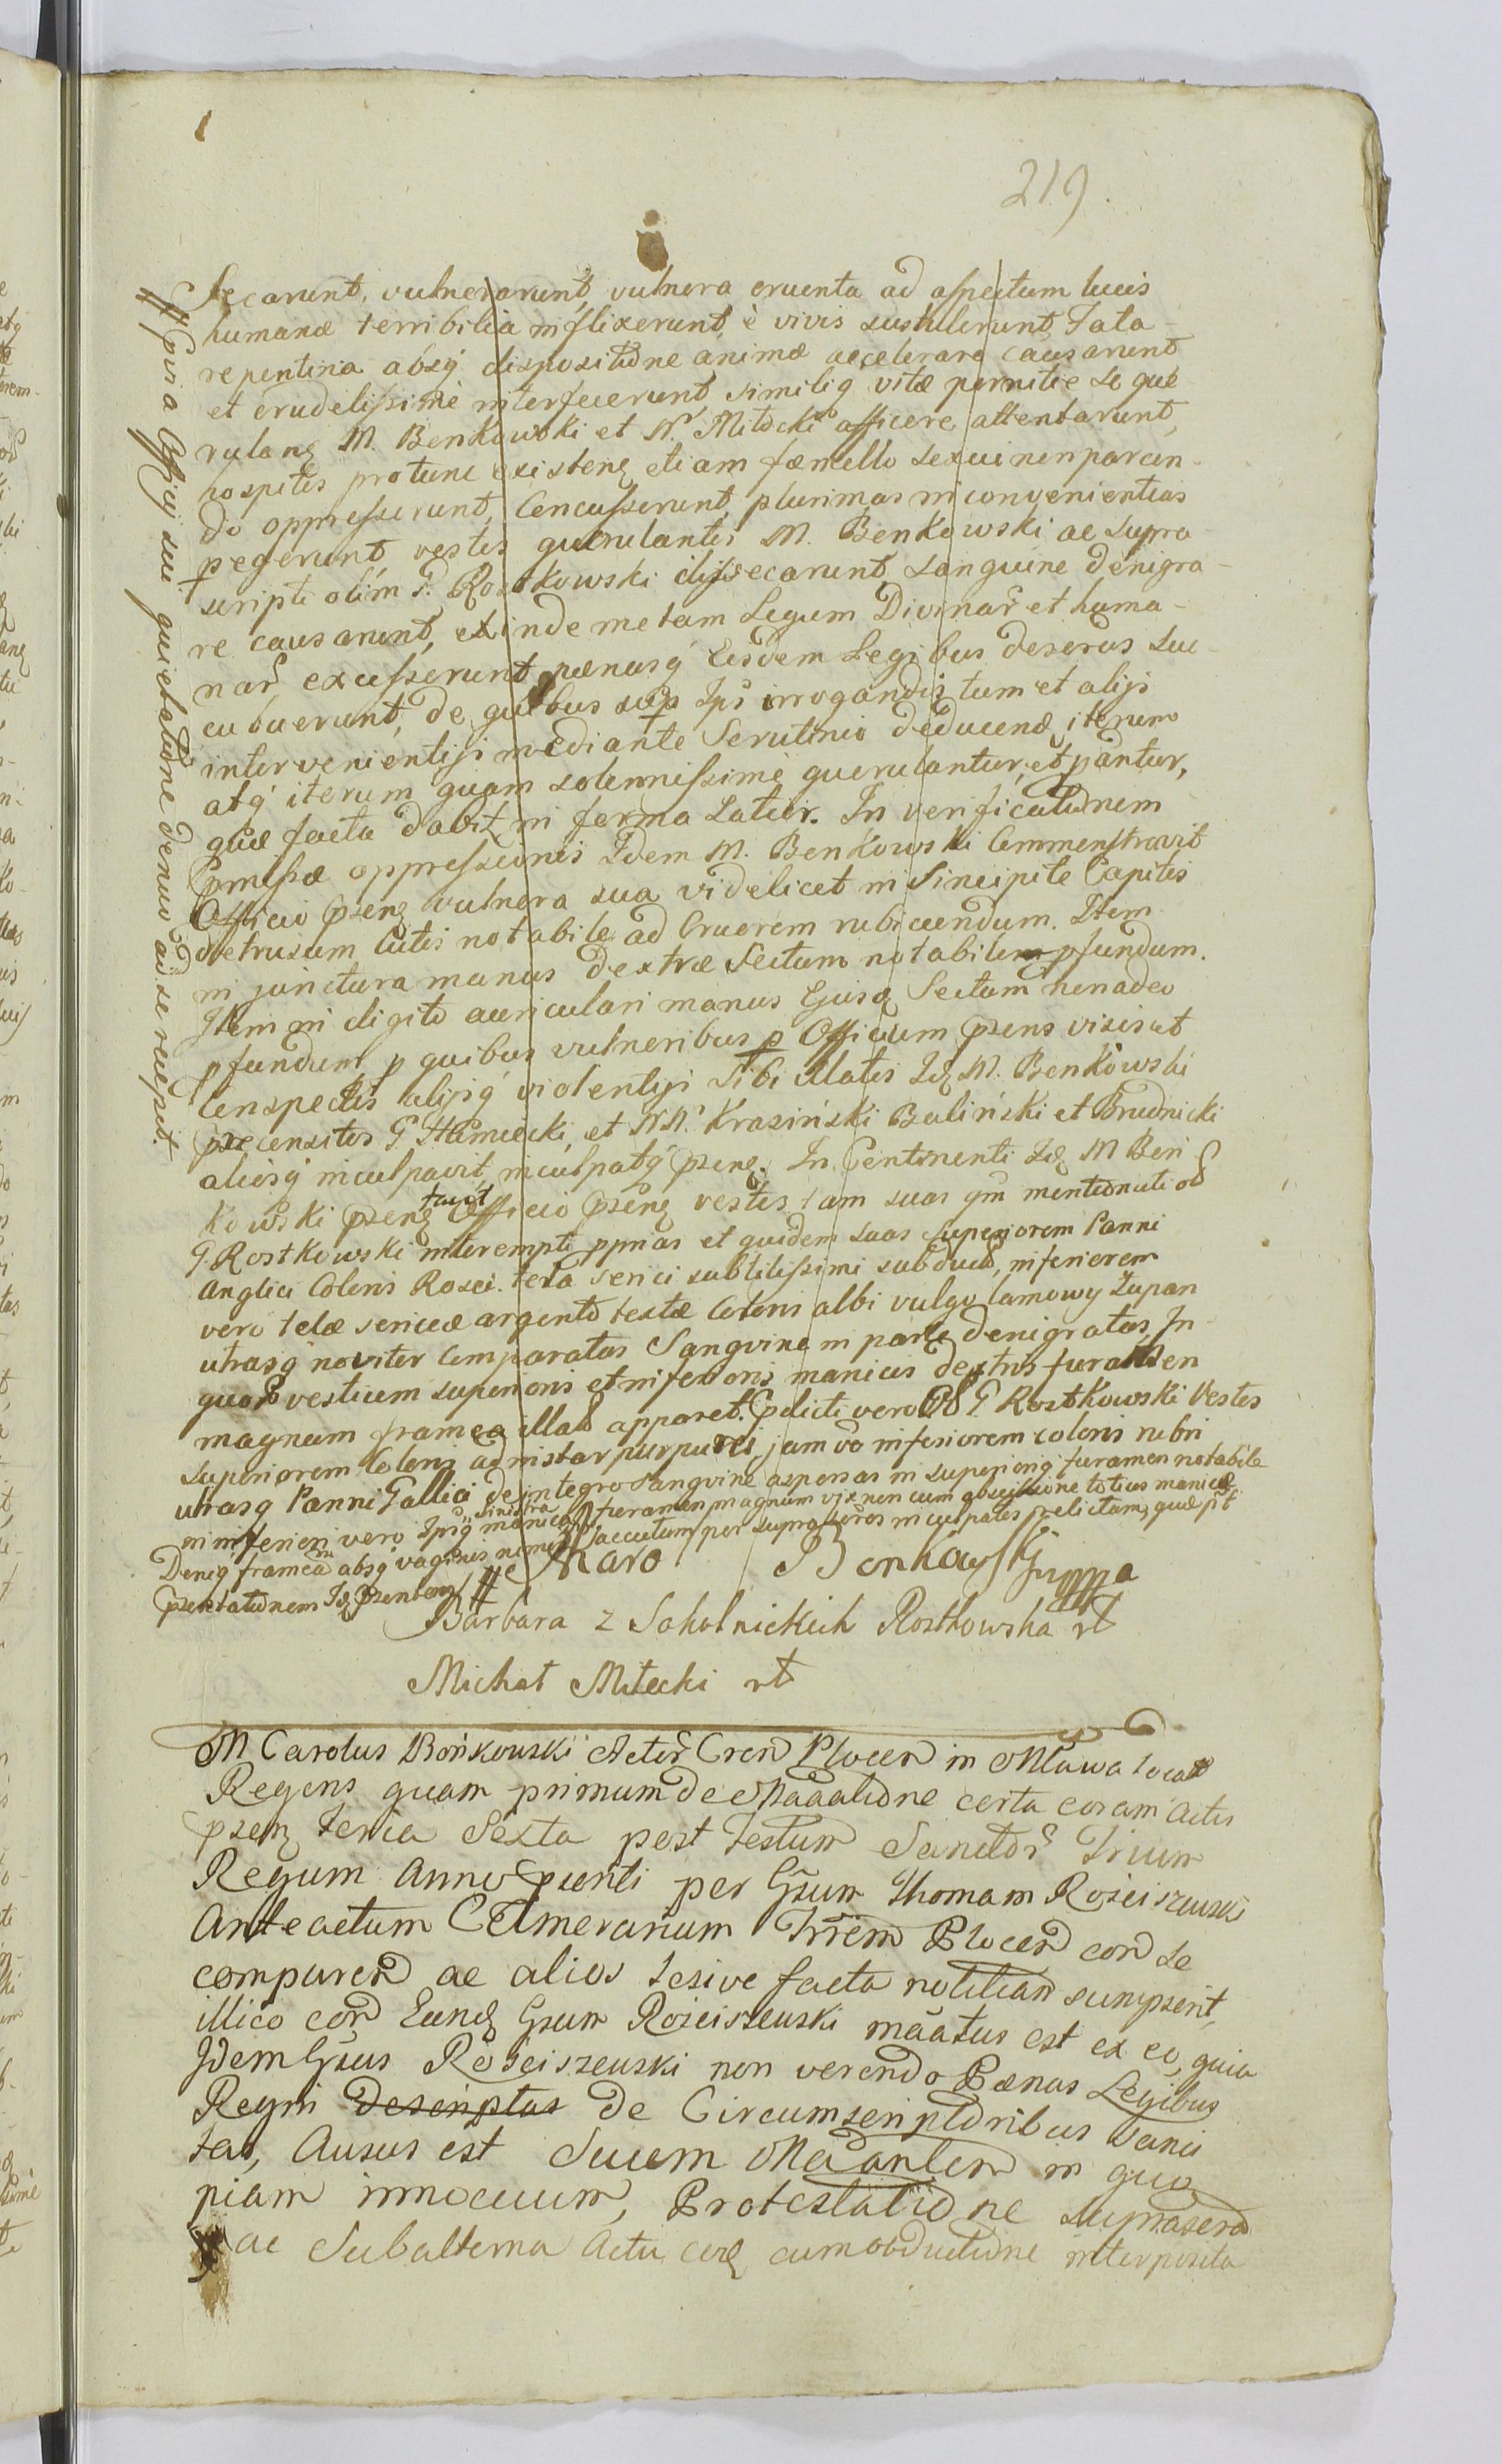 219.
Secarunt, vulnerarunt, vulnera cruenta ad aspectum lucis
humanæ terribilia inflixerunt, è vivis sustulerunt, Fata
repentina absq dispositione animæ accelerare causarunt
et crudelissimè interfecerunt, similiq vitæ pernitie se que
rulanę M. Benkowski et N. Mitocki afficere attentarunt,
hospites protunc existenę etiam fæmello sexui non parcen-
do oppresserunt, Concusserunt, plurimas inconvenientias
pegerunt, vestes querulantis M. Benkowski ac supra
scripti olim G. Rostkowski dissecarunt, sanguine denigra-
re causarunt, exinde metam Legum Divinar et huma-
nar excesserunt, pænasq Eisdem Legibus deseros suc-
cubuerunt, de quibus sup Ips irrogandis tum et alijs
intervenientijs mediante Scrutinio deducenď, iterum
atq iterum quam solennissimè querulantur, et ptantur,
quæ facta dabit in forma Latior. In verificationem
Pmissæ oppressionis Idem M. Benkowski Commonstravit
Officio Psenę vulnera sua videlicet in Sincipite Capitis
detrusum Cutis notabile ad Cruorem rubicundum. Item
in junctura manus dextræ Sectum notabile pfundum.
Item in digito auriculari manus Ejusď Sectum non adeo
pfundum p quibus vulneribus p Officium Psens visis et
Conspectis alijsq violentijs Sibi illatis Id M. Benkowski
præcensitos G. Humiecki, et NN. Krasiński Baliński et Brudnicki
aliosq inculpavit, inculpatq Psenę. In Continenti Id M Ben
kowski Psenę tavit Officio Psenę vestes tam suas qm mentionati ol
G. Rostkowski interempti pprias et quidem suas superiorem Panni
Anglici Coloris Rosei. tela serici subtilissimi subduct, inferiorem
vero telæ sericeæ argento textæ Coloris albi vulgo lamowy Zupan
utrasq noviter Comparatas Sangvine in parte denigratas, In
quar vestium superioris et inferioris manicis dextris furamen
magnum framea illat apparet. Pdicti vero Ol G. Rostkowski Vestes
superiorem Coloris ad instar purpurei, jam vo inferiorem coloris rubri
utrasq Panni Gallici de integro Sangvine aspersas in superiori furamen notabile
in inferiori vero Ipsiq manica sinistra furamen magnum vix non cum abscissione totius manicæ
Deniq frameam absq vaginis nimis accutum per suprascros inculpatos relictam, quæ pt
psentationem Id Psentans #
# pura Officij sui quietatione denuo ad se recepit.
Karo Bonkowski mppa
Barbara z Sokolnickich Rostkowska mp
Michał Mitecki mp
M Carolus Bońkowski Actor Cren Plocen in Mlawa locat
Regens quam primum de Maãatione certa coram actis
psenę Feria Sexta post Festum Sanctor Trium
Regum Anno Psenti per Gsum Thomam Rosciszewski
Anteactum Camerarium Trrem Plocen con se
comparen ac alios sesive facta notitiam sumpserit,
illico con Eunď Gsum Rosciszewski maãtus est ex eo, quia
Idem Gsus Rosciszewski non verendo Pænas Legibus
Regni Descriptas de Circumscriptoribus Sanci
tas, Ausus est Suum Maãantem in quo
piam innocuum, Protestatione supraser
ac Subalterna Actu cerę cum obductione interposita